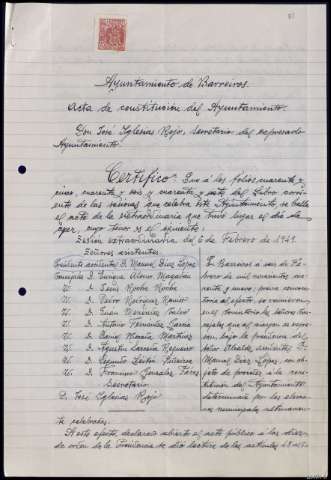 Ayuntamiento de Barreiros.
Acta de constitución del Ayuntamiento.
Don José Iglesias Rojo, Secretario del expresado
Ayuntamiento.
Certifico: Que á los folios cuarenta y
cinco, cuarenta y seis y cuarenta y siete del Libro corri-
ente de las sesiones que celebra este Ayuntamiento, se halla
el acta de la extraordinaria que tuvo lugar el día de
ayer, cuyo tenor es el siguiente:
Sesión extraordinaria del 6 de Febrero de 1949.
Señores asistentes:
Presidente accidental D. Manuel Díaz López
Concejales D. Enrique Alonso
Id. D. Jesús Rocha Rocha
Id. D. Pedro Rodríguez Ramos
Id. D. Juan
Id. D. Antonio Fernández García
Id. D. Daniel Martínez
Id. D. Agustín
Id. D. Segundo
Id. D. Francisco González Pérez
Secretario
D. José Iglesias Rojo
En Barreiros á seis de Fe-
brero de mil novecientos cuaren-
ta y nueve; previa convoca-
toria al efecto, se reunieron
en el Consistorio los Señores Con-
cejales que al margen se expre-
san, bajo la Presidencia del
Señor Alcalde accidental D.
Manuel Díaz López, con ob-
jeto de proceder á la cons-
titución del Ayuntamiento
determinada por las eleccio-
nes municipales
te celebradas.
A este efecto, declarado abierto el acto público á las diez
de orden de la Presidencia se dió lectura de los artículos